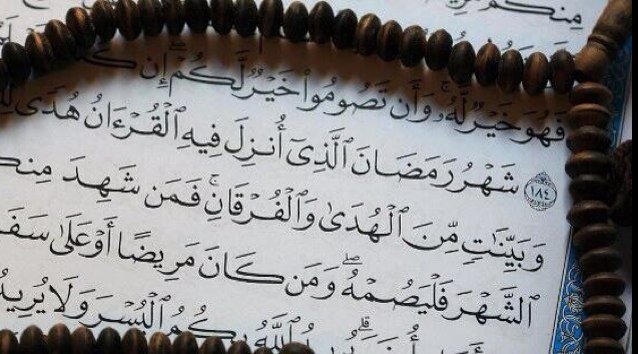 مِنكُم
فَهُوَ خَيْرٌ لَّهُۥ ۚ وَأَن تَصُومُوا۟ خَيْرٌ لَّكُمْ ۖ إِن
١٨٤ شَهْرُ رَمَضَانَ ٱلَّذِىٓ أُنزِلَ فِيهِ ٱلْقُرْءَانُ هُدًى
وَبَيِّنَٰتٍ مِّنَ ٱلْهُدَىٰ وَٱلْفُرْقَانِ ۚ فَمَن شَهِدَ مِنكُ
ٱلشَّهْرَ فَلْيَصُمْهُ ۖ وَمَن كَانَ مَرِيضًا أَوْ عَلَىٰ سَفَ
ٱللَّهُ بِكُمُ ٱلْيُسْرَ وَلَا يُرِيدُ